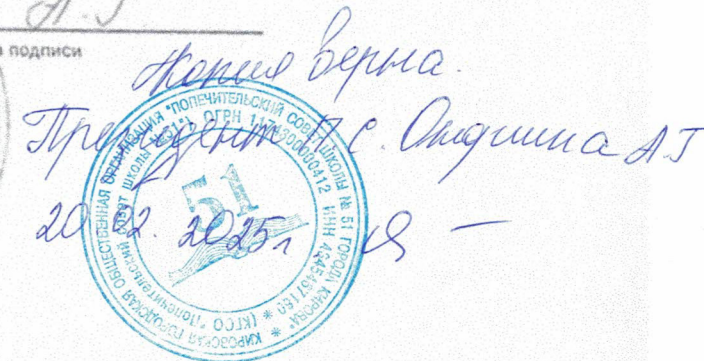 А.Г
подписи
Копия верна.
Президент П.С. А.Г
20 2025г
КИРОВСКАЯ ГОРОДСКАЯ ОБЩЕСТВЕННАЯ ОРГАНИЗАЦИЯ "ПОПЕЧИТЕЛЬСКИЙ СОВЕТ ШКОЛЫ № 51 ГОРОДА КИРОВА"
(КГОО "Попечительский совет школы № 51") ОГРН ИНН
51